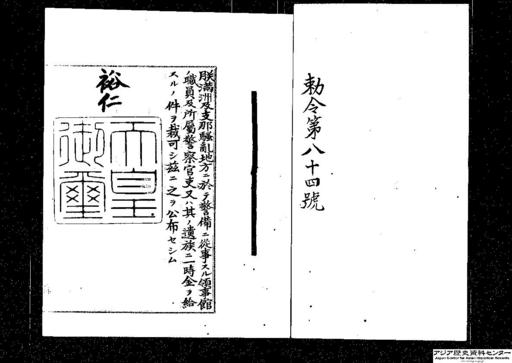 勅令第八十四號
朕滿洲及支那騷亂地方ニ於テ警備ニ從事スル領事館
ノ職員及所屬警察官吏又ハ其ノ遺族ニ一時金ヲ給
スルノ件ヲ裁可シ茲ニ之ヲ公布セシム
裕仁
天皇
御璽
アジア歴史資料センター
Japan Center for Asian Historical Records